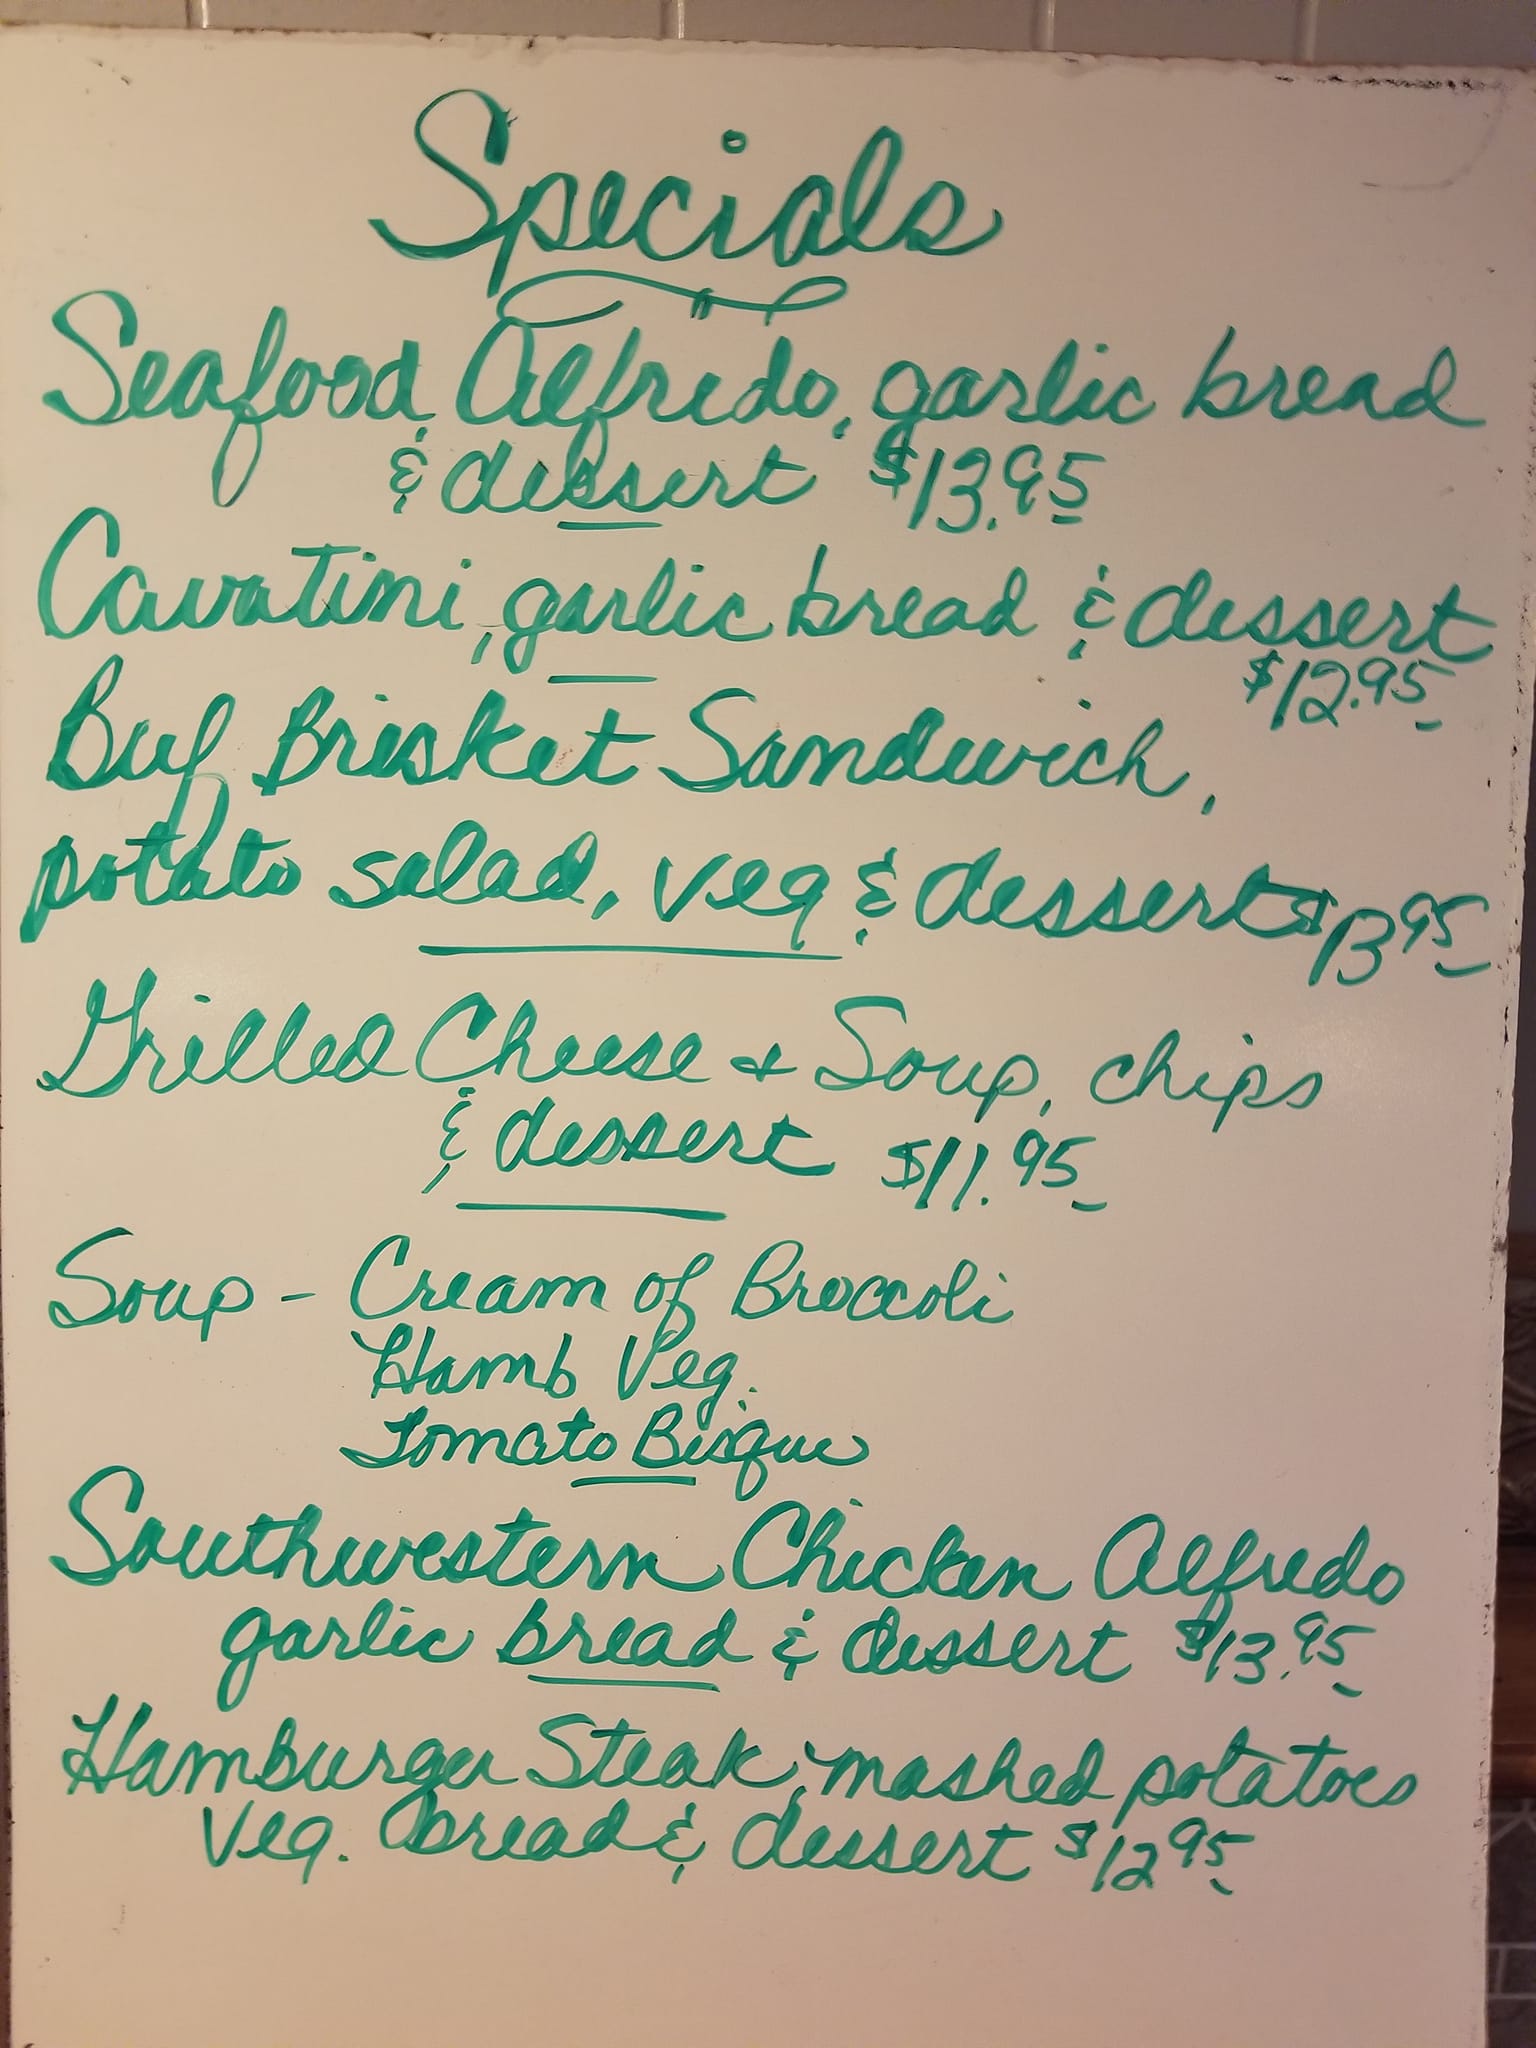 Specials
Seafood Alfredo, garlic bread
& dessert $13.95
Cavatini, garlic bread & dessert
$12.95
Beef Brisket Sandwich,
potato salad, veg & dessert $13.95
Grilled Cheese & Soup, chips
& dessert $11.95
Soup - Cream of Broccoli
Hamb Veg.
Tomato Bisque
Southwestern Chicken Alfredo
garlic bread & dessert $13.95
Hamburger Steak, mashed potatoes
Veg. bread & dessert $12.95